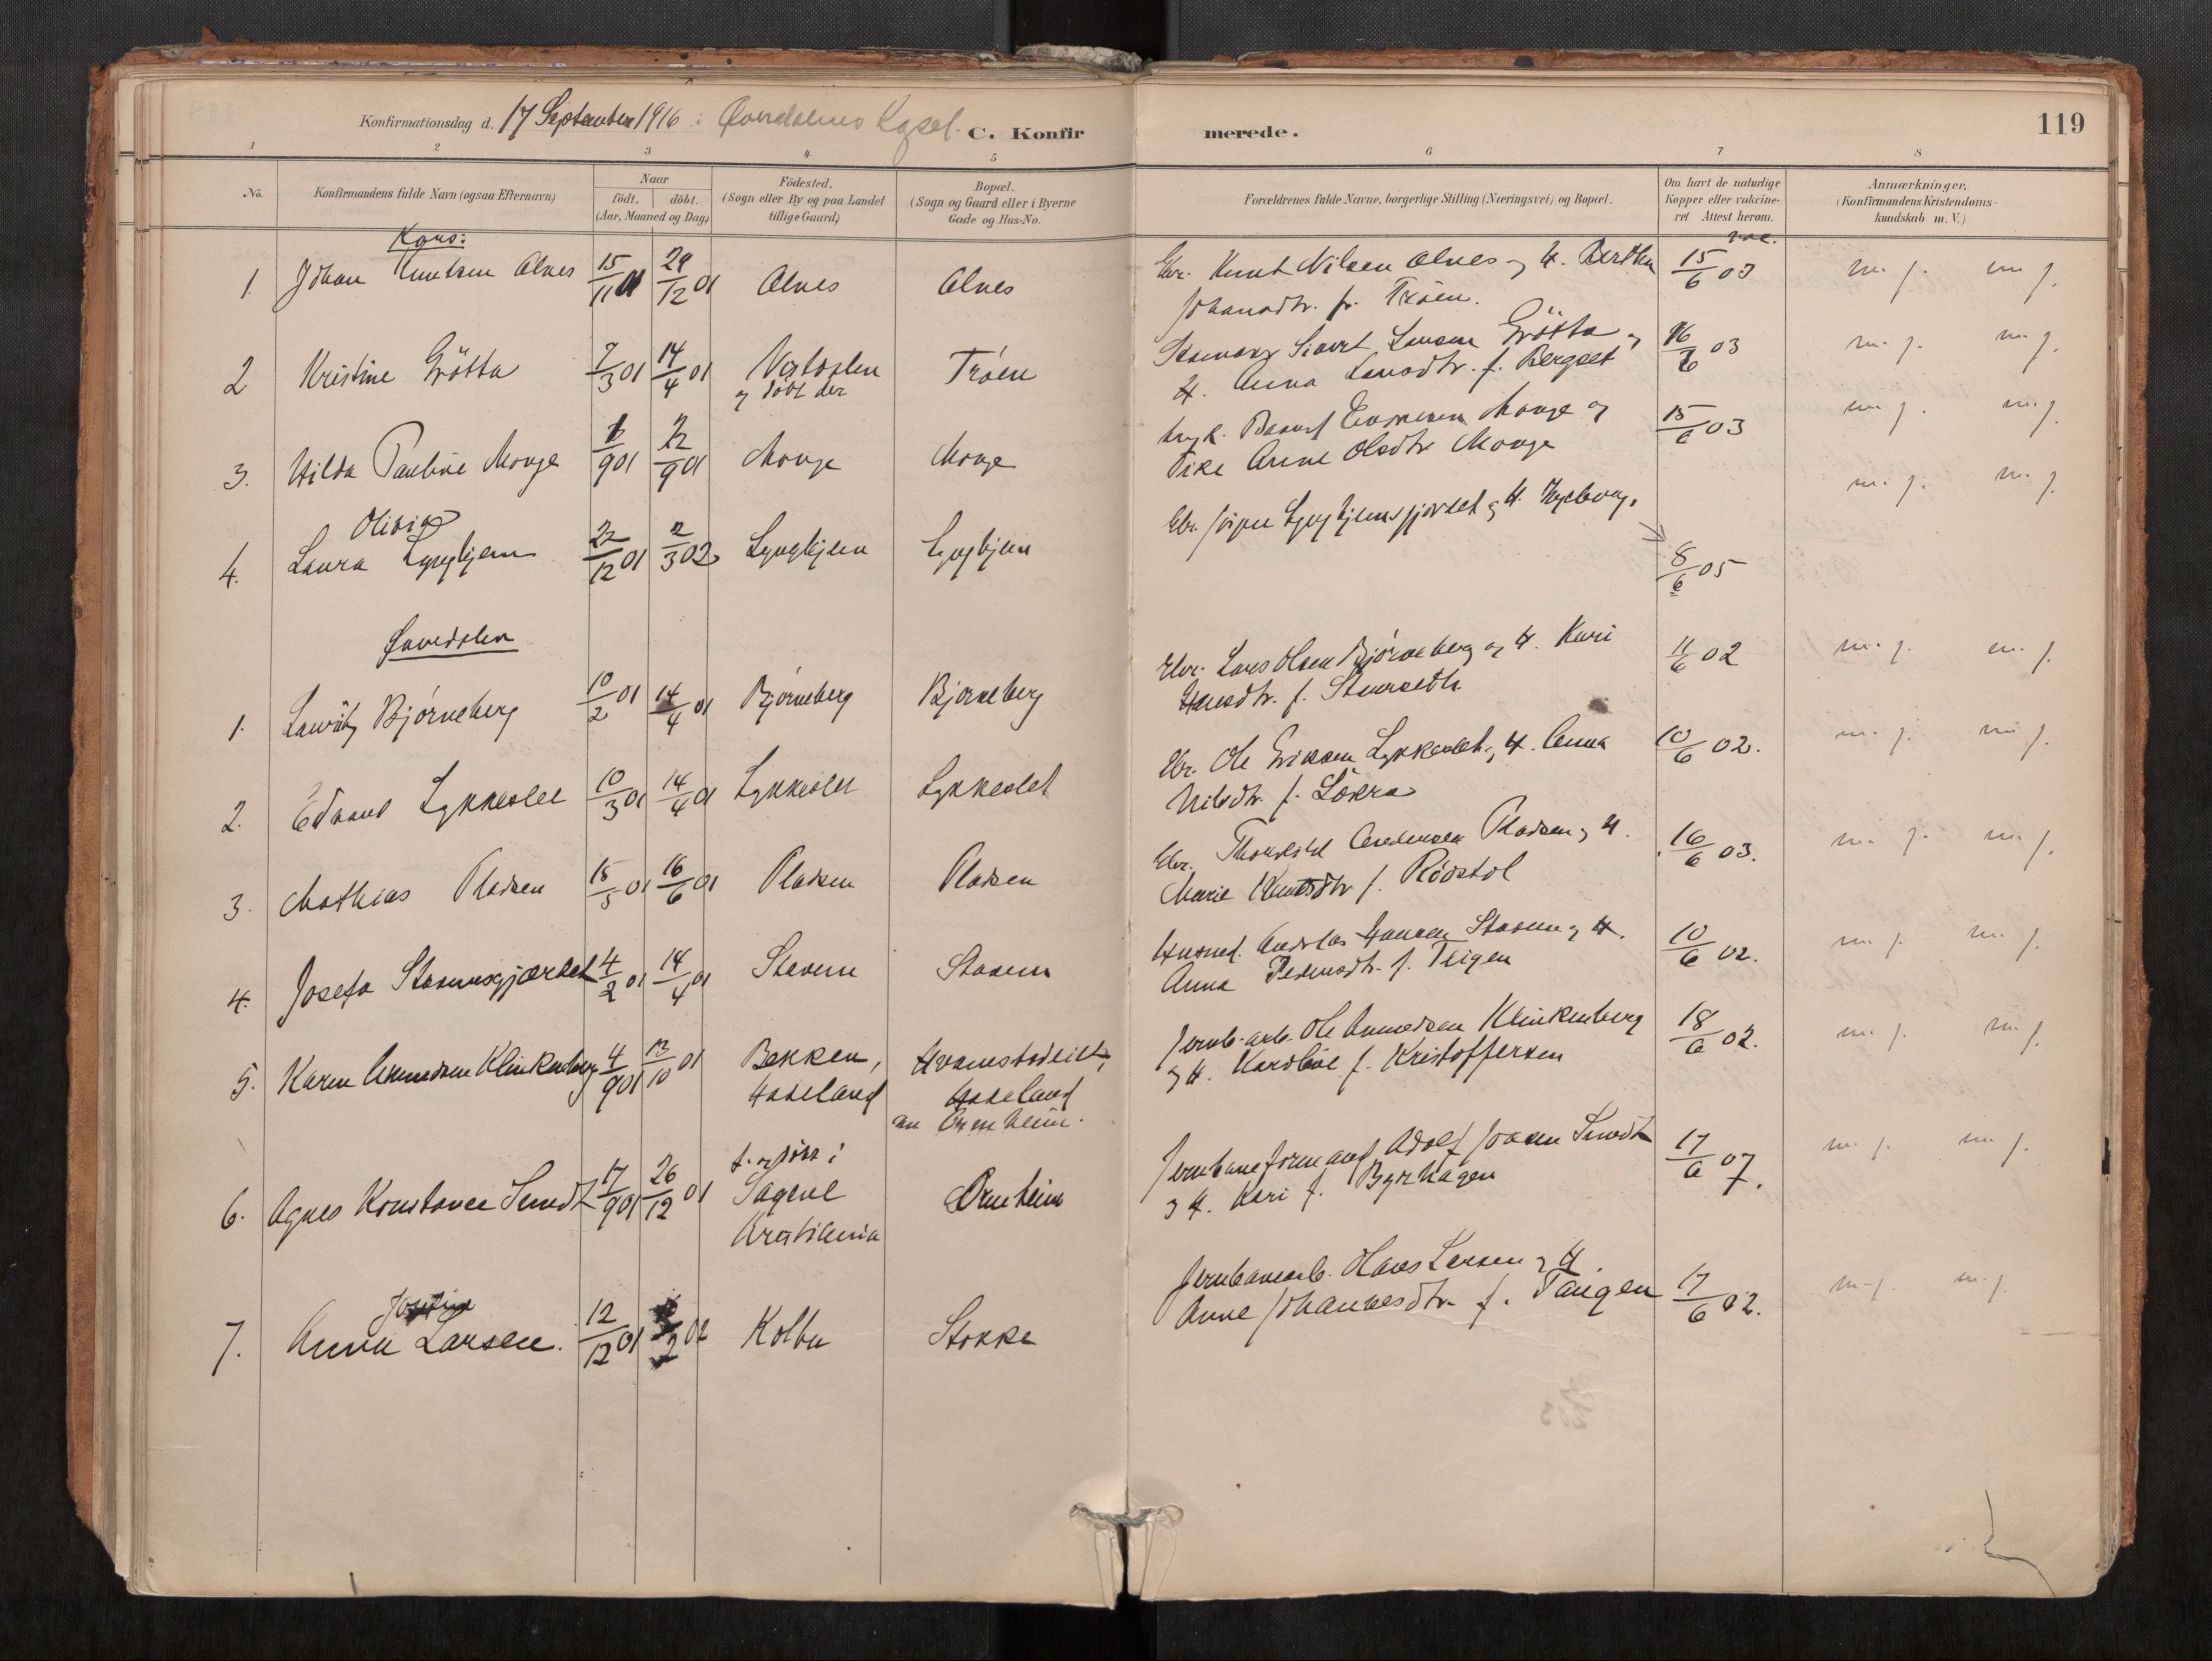 Konfirmationsdag d. 17 September 1916 i Øverdalens Kapel.
C. Konfirmerede.
119
1 2 3 4 5 6 7 8
No.
Konfirmandens fulde Navn (ogsaa Efternavn)
Naar
födt. döbt.
(Aar, Maaned og Dag)
Födested.
(Sogn eller By og paa Landet
tillige Gaard)
Bopæl.
(Sogn og Gaard eller i Byerne
Gade og Hus-No.
Forældrenes fulde Navne, borgerlige Stilling (Næringsvei) og Bopæl.
Om havt de naturlige
Kopper eller vakcine-
ret Attest herom.
Anmærkninger.
(Konfirmandens Kristendoms-
kundskab m. V.)
Kors:
vac.
1. Johan Knutsen Alnes 15/11 01 29/12 01 Alnes Alnes Gbr. Knut Nilsen Alnes og H. Berthe 15/6 03 m. g. m g.
Johansdtr. f. Trøen.
2 Kristine Grötta 7/3 01 14/4 01 Nordalen Trøen Sivert Larsen Grötta og 16/6 03 m. g. m g.
og döbt der H. Anna Larsdtr. f. Bergset
3. Hilda Pauline Monge 1/9 01 22/9 01 Monge Monge Ungk. Monge og 15/6 03 m. g. m. g.
Pike Anne Olsdtr Monge
Olivia
4. Laura Lynghjem 22/12 01 2/3 02 Lynghjem Lynghjem Gbr. Jörgen Lynghjemsgjærdet og H. Ingeborg. 8/6 05 m. g. m g.
Øverdalen
1. Lauritz Bjørneberg 10/2 01 14/4 01 Bjørneberg Bjørneberg Gbr. Lars Olsen Bjørneberg og H. Kari 11/6 02 m. g. m g.
Hansdtr. f.
2. Edvard Lykkeslet 10/3 01 14/4 01 Lykkeslet Lykkeslet Gbr. Ole Eriksen Lykkeslet og H. Anna 10/6 02. m. g. m g.
Nilsdtr. f. Sökra
3. Mathias Pladsen 15/5 01 16/6 01 Pladsen Pladsen Gbr. Thorkild Andersen Pladsen og H. 16/6 03. m. g. m g.
Marie Knutsdtr f. Rödstöl
4. Josefa Stavemsgjærdet 4/2 01 14/4 01 Stavem Stavem Husmd. Andreas Hansen Stavem og H. 10/6 02. m. g. m. g.
Anna Pedersdtr. f. Teigen
5. Karen Amundsen Klinkenberg 4/9 01 13/10 01 Bakken, Jernb.arb. Ole Amundsen Klinkenberg 18/6 02. m. g. m. g.
Hadeland Hadeland og H. Karoline f. Kristoffersen
nu Ormheim.
6. Agnes Konstance Smidt 17/9 01 26/12 01 f. og döbt i Jernbaneformand Adolf Smidt 17/6 07. m. g. m g.
Sagene Ormheim og H. Kari f. Byrhagen
Kristiania
Justine
7. Anna Larsen. 12/12 01 2/2 02 Kolbu Stokke Jernbanearb. Hans Larsen og H. 17/6 02. m. g. m. g.
Anne Johannesdtr. f. Taugen